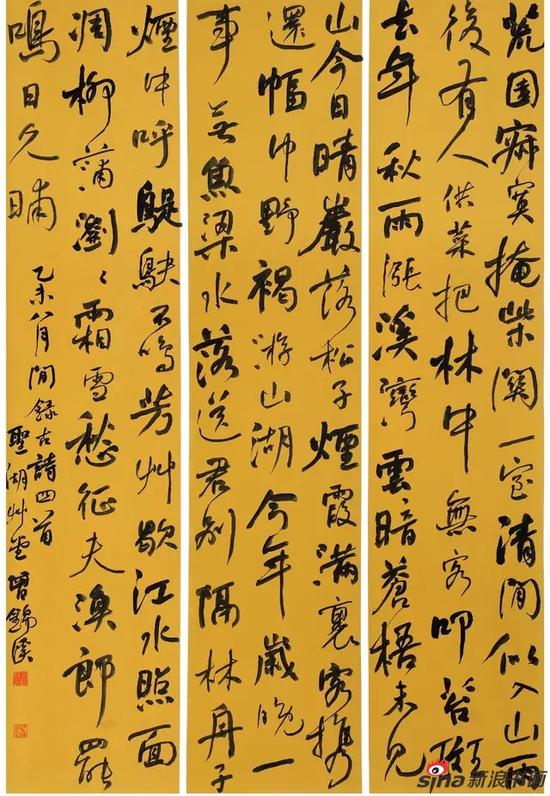 荒園寂寞掩柴關一室清閒似入山雨
後有人供菜把林中無客叩苔
去年秋雨漲溪灣雲暗蒼梧未見
山今日晴巖落松子煙霞滿裏客攜
還幅巾野褐游山湖今年歲晚一
事無魚梁水落送君別隔林舟子
煙中呼鶗鴃不鳴芳艸歇江水照面
凋柳蒲瀏〻霜雪愁征夫漁郎罷
鳴日久晡
乙未八月間錄古詩四首
聖湖艸堂曾錦溪
sina 新浪书画